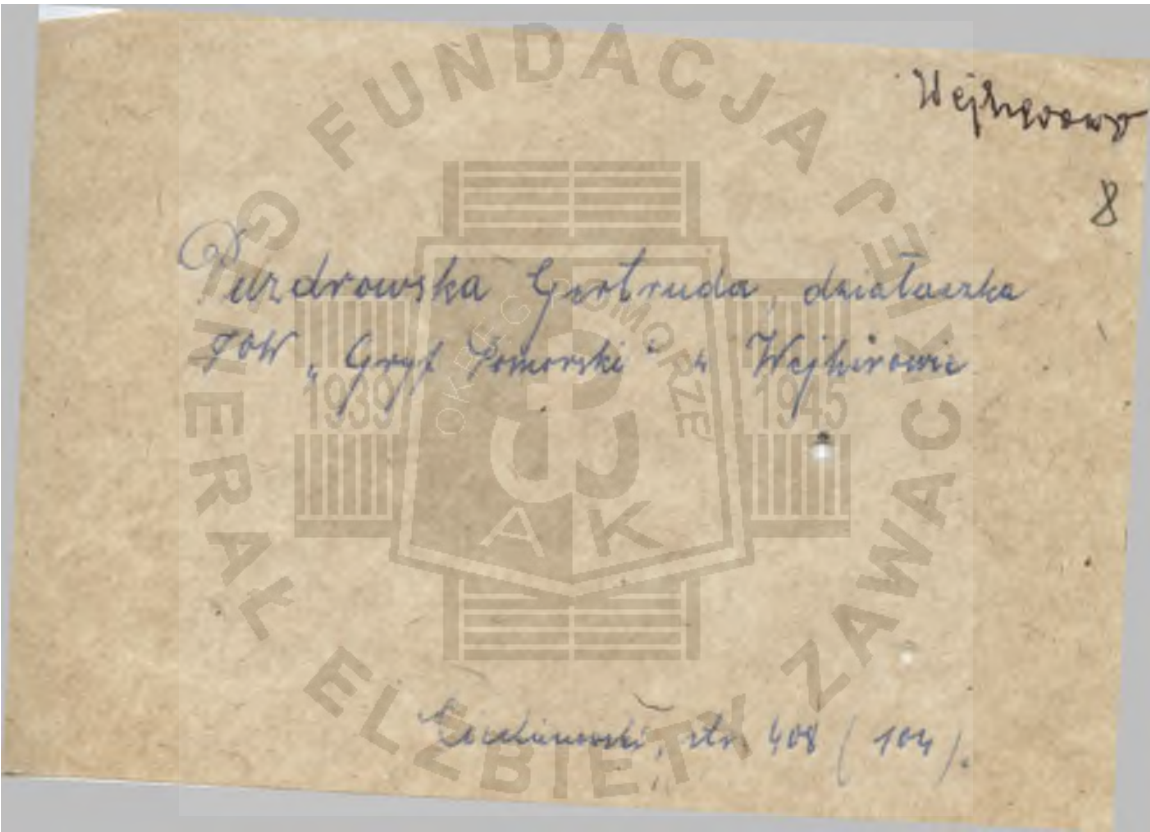 Wejherowo
8
Puzdrowska Gertruda, działaczka
TOW „Gryf Pomorski" w Wejherowie
str. 408 (104).
FUNDACJA GENERAŁ ELŻBIETY ZAWACKIEJ
OKRĘG POMORZE
1939 1945
AK